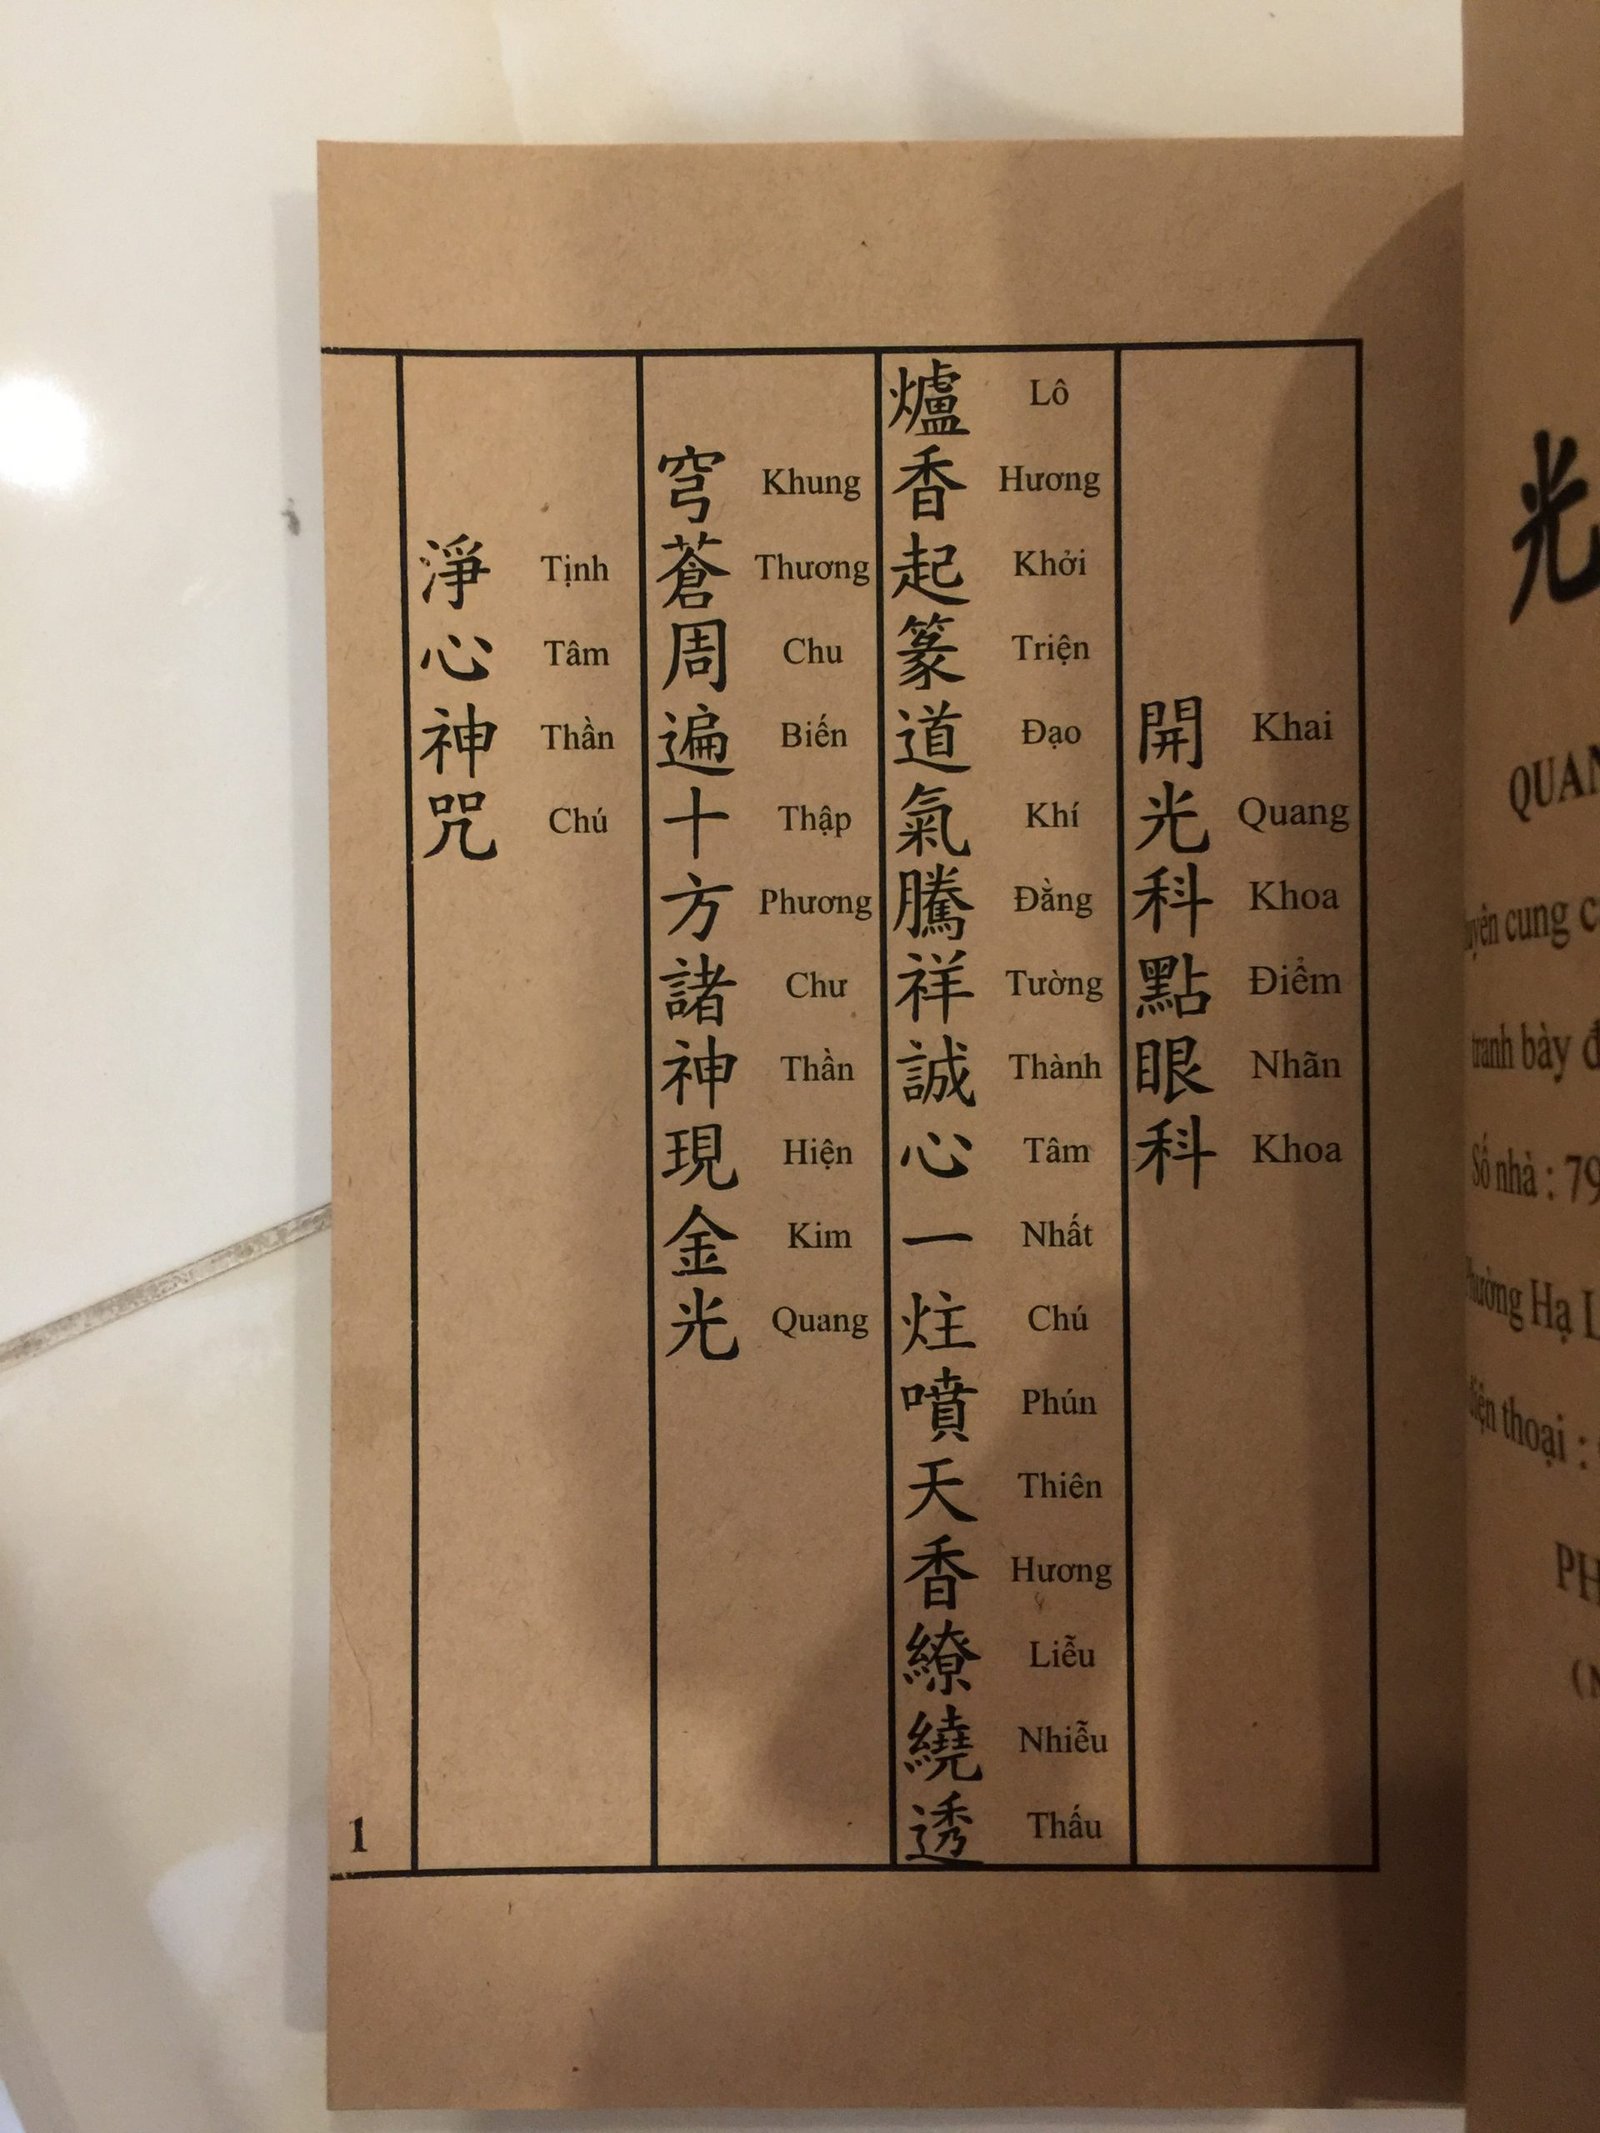 開光科點眼科
Khai Quang Khoa Điểm Nhãn Khoa
爐香起篆道氣騰祥誠心一炷噴天香繚繞透
Lô Hương Khởi Triện Đạo Khí Đằng Tường Thành Tâm Nhất Chú Phún Thiên Hương Liễu Nhiễu Thấu
穹蒼周遍十方諸神現金光
Khung Thương Chu Biến Thập Phương Chư Thần Hiện Kim Quang
淨心神咒
Tịnh Tâm Thần Chú
1
光
QUAN
cung
tranh bày
Số nhà : 79
Hạ L
thoại :
PH